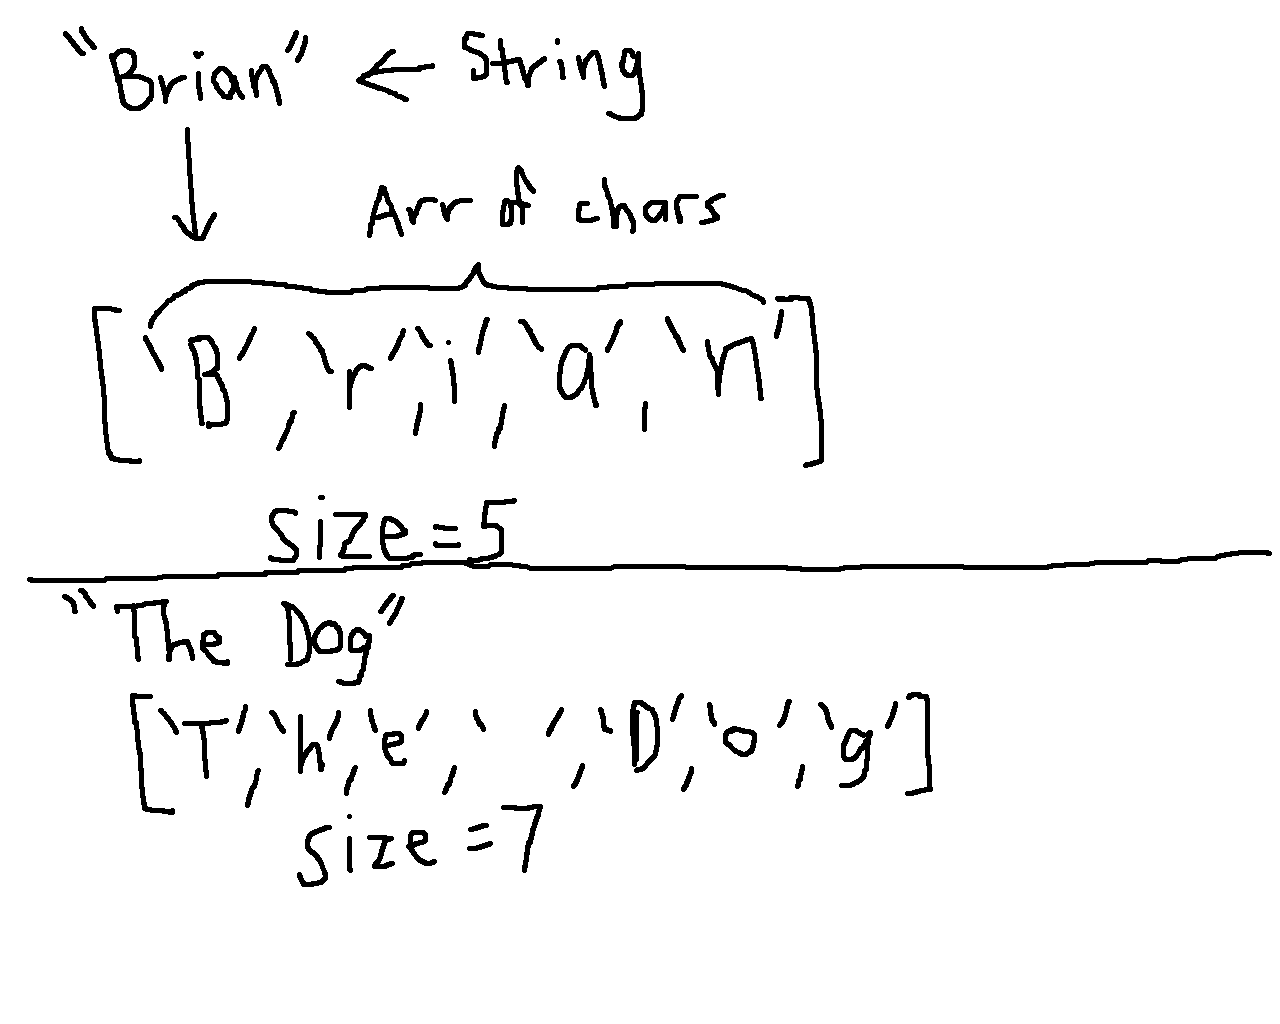 "Brian" ← String
Arr of chars
['B', 'r', 'i', 'a', 'n']
size = 5
"The Dog"
['T', 'h', 'e', ' ', 'D', 'o', 'g']
size = 7